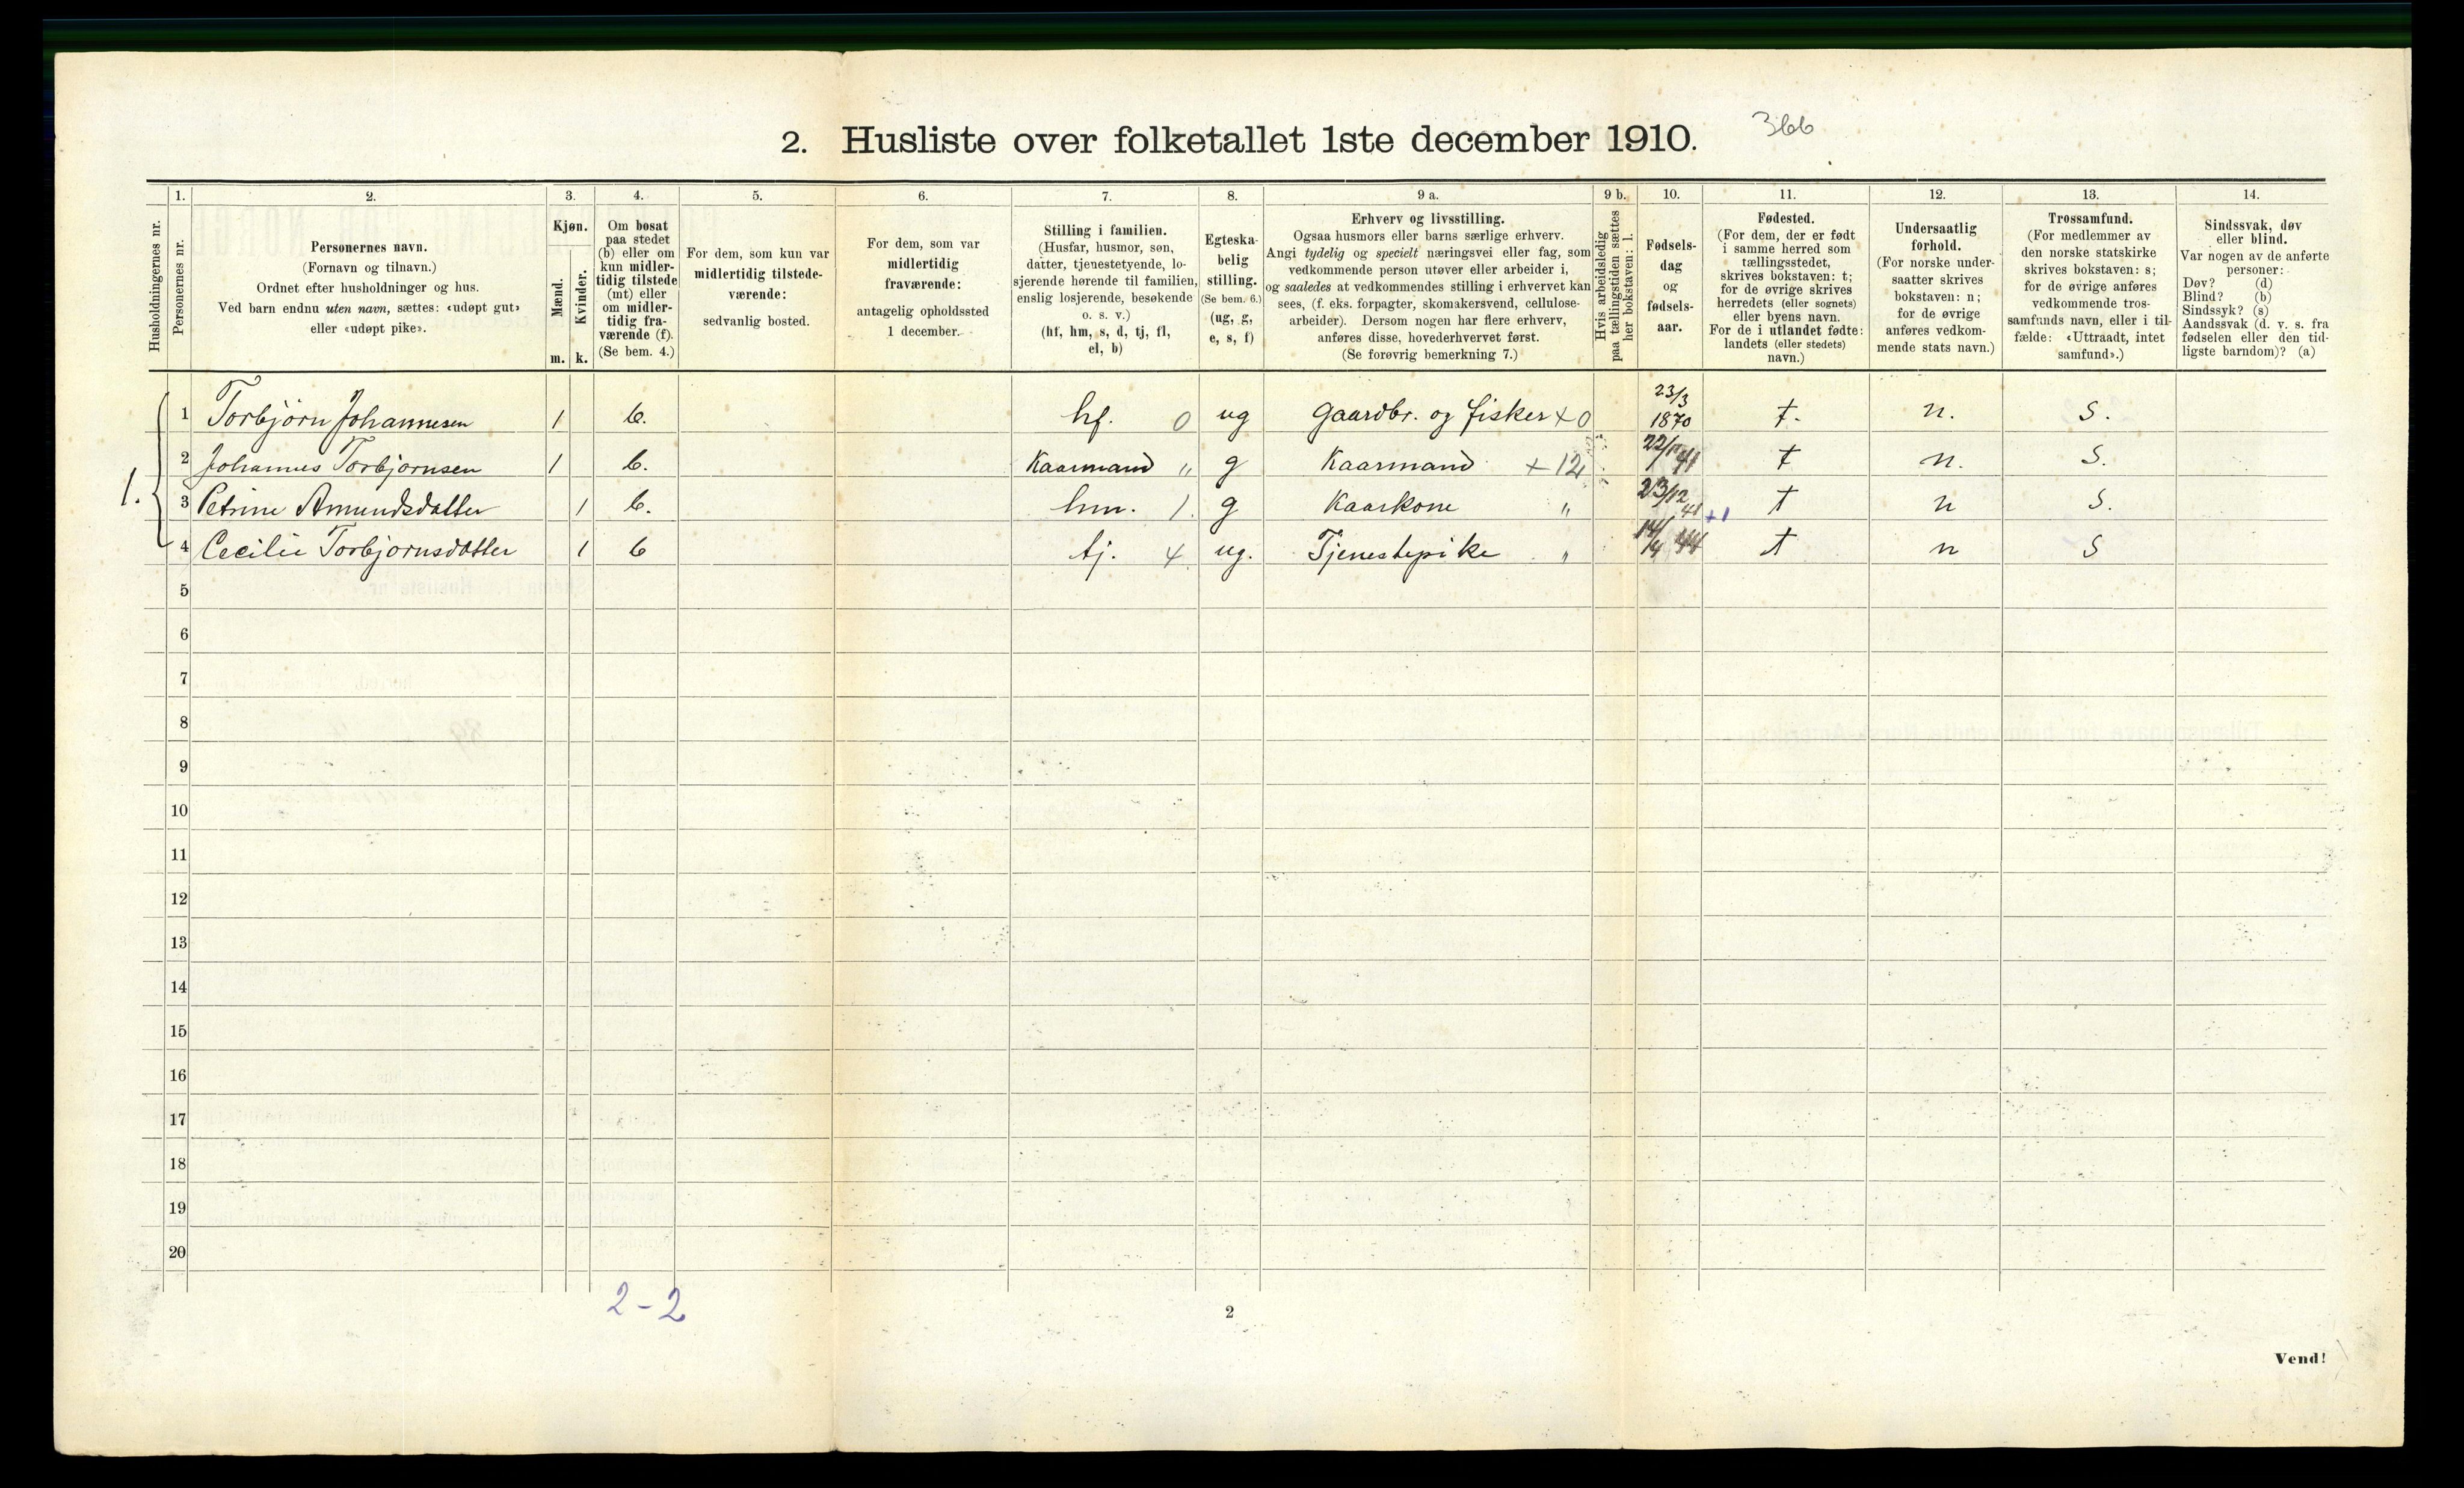 2. Husliste over folketallet 1ste december 1910. 366
1. 2. 3. 4. 5. 6. 7. 8. 9 a. 9 b. 10. 11. 12. 13. 14.
Husholdningernes nr.
Personernes nr.
Personernes navn.
(Fornavn og tilnavn.)
Ordnet efter husholdninger og hus.
Ved barn endnu uten navn, sættes: «udøpt gut»
eller «udøpt pike».
Kjøn.
Mænd.
Kvinder.
m. k.
Om bosat
paa stedet
(b) eller om
kun midler-
tidig tilstede
(mt) eller
om midler-
tidig fra-
værende (f).
(Se bem. 4.)
For dem, som kun var
midlertidig tilstede-
værende:
sedvanlig bosted.
For dem, som var
midlertidig
fraværende:
antagelig opholdssted
1 december.
Stilling i familien.
(Husfar, husmor, søn,
datter, tjenestetyende, lo-
sjerende hørende til familien,
enslig losjerende, besøkende
o. s. v.)
(hf, hm, s, d, tj, fl,
el, b)
Egteska-
belig
stilling.
(Se bem. 6.)
(ug, g,
e, s, f)
Erhverv og livsstilling.
Ogsaa husmors eller barns særlige erhverv.
Angi tydelig og specielt næringsvei eller fag, som
vedkommende person utøver eller arbeider i,
og saaledes at vedkommendes stilling i erhvervet kan
sees, (f. eks. forpagter, skomakersvend, cellulose-
arbeider). Dersom nogen har flere erhverv,
anføres disse, hovederhvervet først.
(Se forøvrig bemerkning 7.)
Hvis arbeidsledig
paa tællingstiden sættes
her bokstaven: l.
Fødsels-
dag
og
fødsels-
aar.
Fødested.
(For dem, der er født
i samme herred som
tællingsstedet,
skrives bokstaven: t;
for de øvrige skrives
herredets (eller sognets)
eller byens navn.
For de i utlandet fødte:
landets (eller stedets)
navn.)
Undersaatlig
forhold.
(For norske under-
saatter skrives
bokstaven: n;
for de øvrige
anføres vedkom-
mende stats navn.)
Trossamfund.
(For medlemmer av
den norske statskirke
skrives bokstaven: s;
for de øvrige anføres
vedkommende tros-
samfunds navn, eller i til-
fælde: «Uttraadt, intet
samfund».)
Sindssvak, døv
eller blind.
Var nogen av de anførte
personer:
Døv? (d)
Blind? (b)
Sindssyk? (s)
Aandssvak (d. v. s. fra
fødselen eller den tid-
ligste barndom)? (a)
1.
1 Torbjørn Johannesen 1 b. hf. 0 ug Gaardbr. og fisker x0 23/3 1870 t. n. s.
2 Johannes Torbjørnsen 1 b. Kaarmand " g Kaarmand + 12 41 t n. s.
3 Petrine Amundsdatter 1 b. hm. 1. g Kaarkone " 23/12 41 +1 t n s.
4 Cecilie Torbjørnsdatter 1 b tj. 4 ug. Tjenestepike " 14/4 44 t n s
5
6
7
8
9
10
11
12
13
14
15
16
17
18
19
20
2-2
2
Vend!